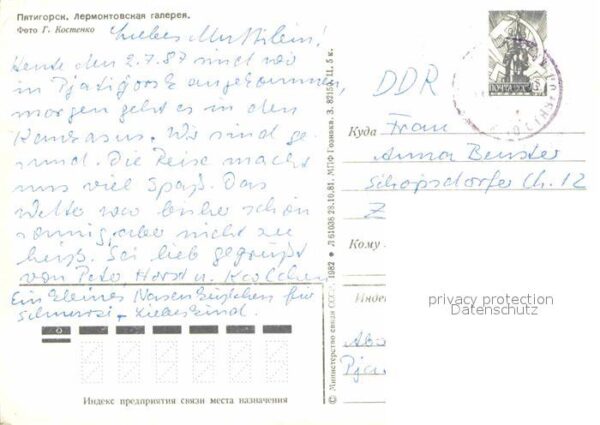 Пятигорск. Лермонтовская галерея.
Фото Г. Костенко
Liebes Muttilein!
Heute den 2.7.87 sind wir
in Pjatigorsk angekommen,
morgen geht es in den
Kaukasus. Wir sind ge-
sund. Die Reise macht
uns viel Spaß. Das
Wetter war bisher schön
sonnig, aber nicht zu
heiß. Sei lieb gegrüßt
von Horst u.
Ein kleines für
ПОЧТА СССР
DDR
Куда Frau
Anna
Ch. 12
Z
Кому
Инде
Abs
Pja
privacy protection
Datenschutz
Индекс предприятия связи места назначения
© Министерство связи СССР. 1982 • Л 61036 28.10.81. МПФ Гознака. З. 82159. Ц. 5 к.